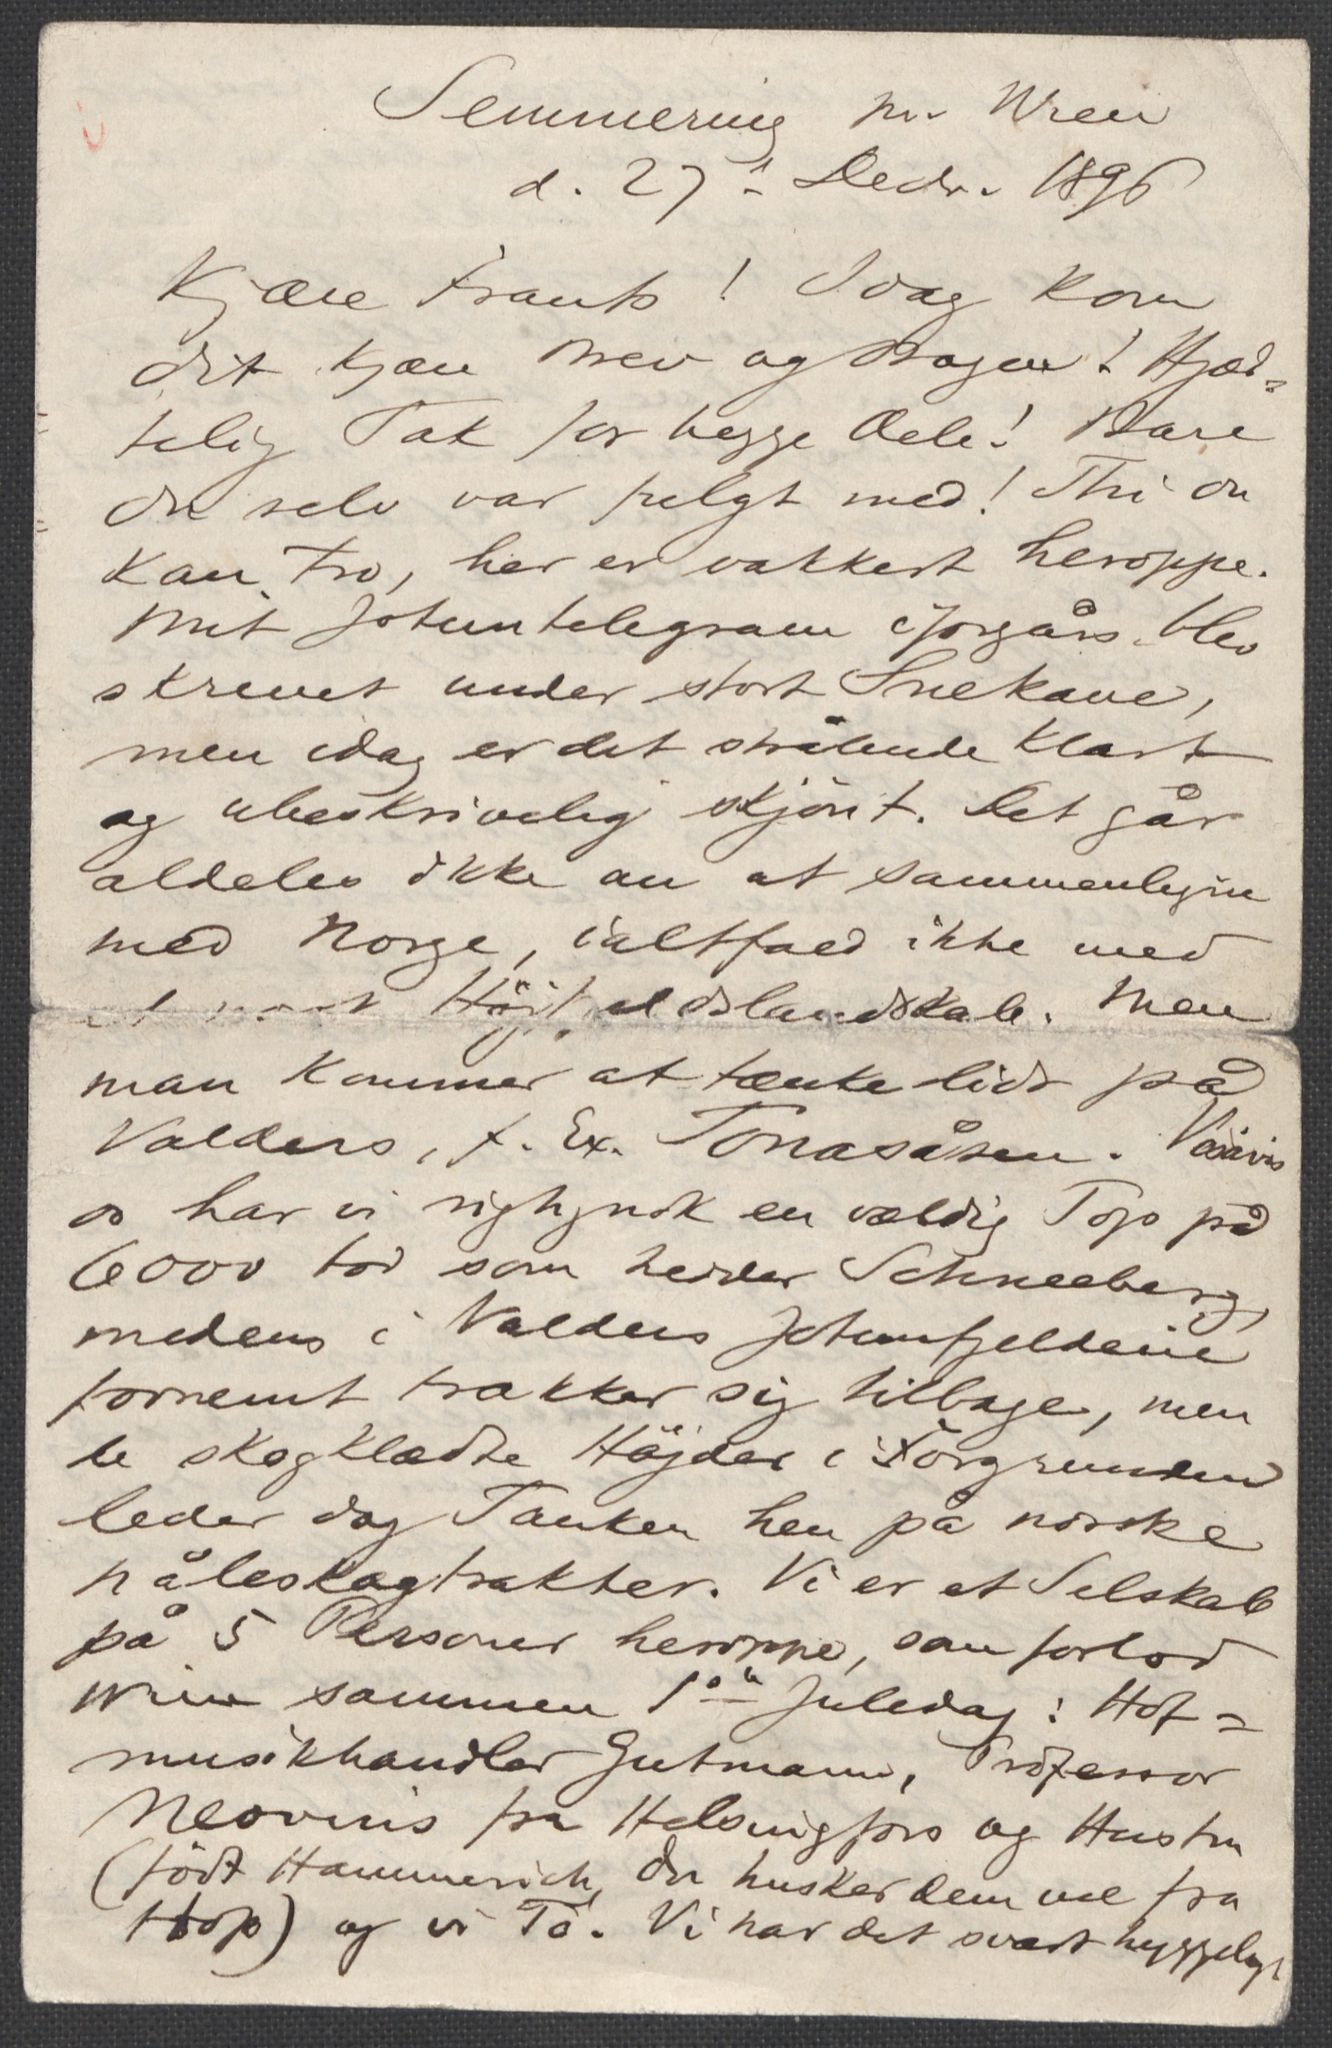 Semmering pr. Wien
d. 27de Decbr. 1896
Kjære Frants! Idag kom
dit kjære Brev og Bogen! Hjær=
telig Tak for begge Dele! Bare
du selv var fulgt med! Thi du
kan tro, her er vakkert heroppe.
Mit Jotuntelegram iforgårs blev
skrevet under stort Snekave,
men idag er det strålende klart
og ubeskrivelig skjönt. Det går
aldeles ikke an at sammenligne
med Norge, ialtfald ikke med
et norsk Höjfjeldslandskab. Men
man kommer at tænke lidt på
Valders, f. Ex. Tonasåsen. Visàvis
os har vi rigtignok en vældig Top på
6000 Fod som hedder Schneeberg,
medens i Valders Jotunfjeldene
fornemt trækker sig tilbage, men
de skogklædte Höjder i Forgrunden
leder dog Tanken hen på norske
Nåleskogtrakter. Vi er et Selskab
på 5 Personer heroppe, som forlod
Wien sammen 1ste Juledag: Hof=
musikhandler Gutmann, Professor
Neovius fra Helsingfors og Hustru
(födt Hammerich, du husker dem vel fra
Hop) og vi To. Vi har det svært hyggeligt